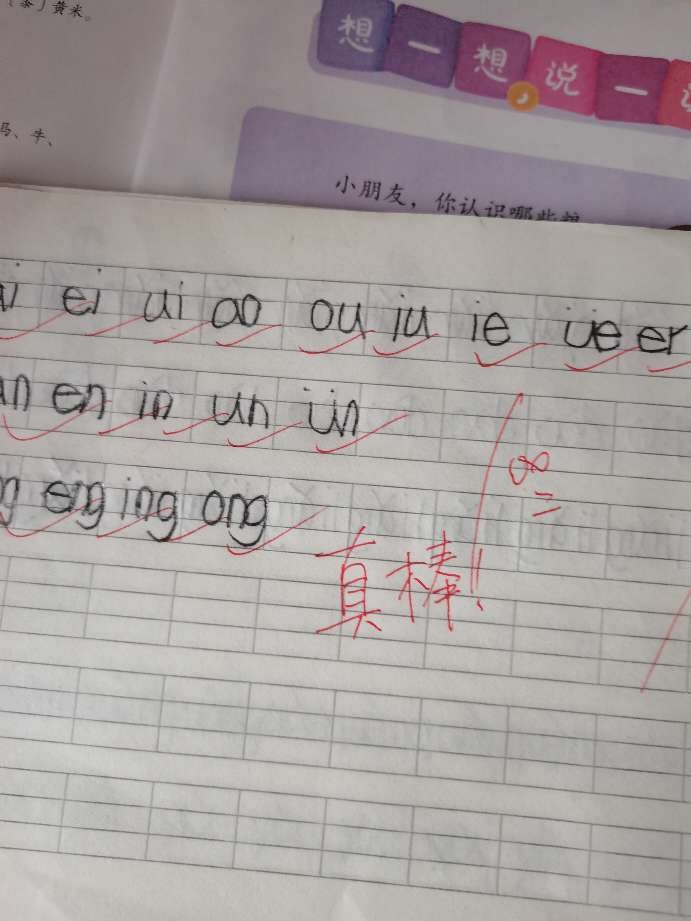 (黍)黄米。
马、牛、
想一想,说一
小朋友，你认识哪些
ei ui ao ou iu ie üe er
en in un ün
eng ing ong
真棒!!